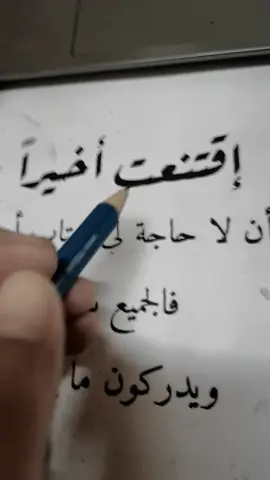 إقتنعت أخيراً
أن لا حاجة
فالجميع
ويدركون ما